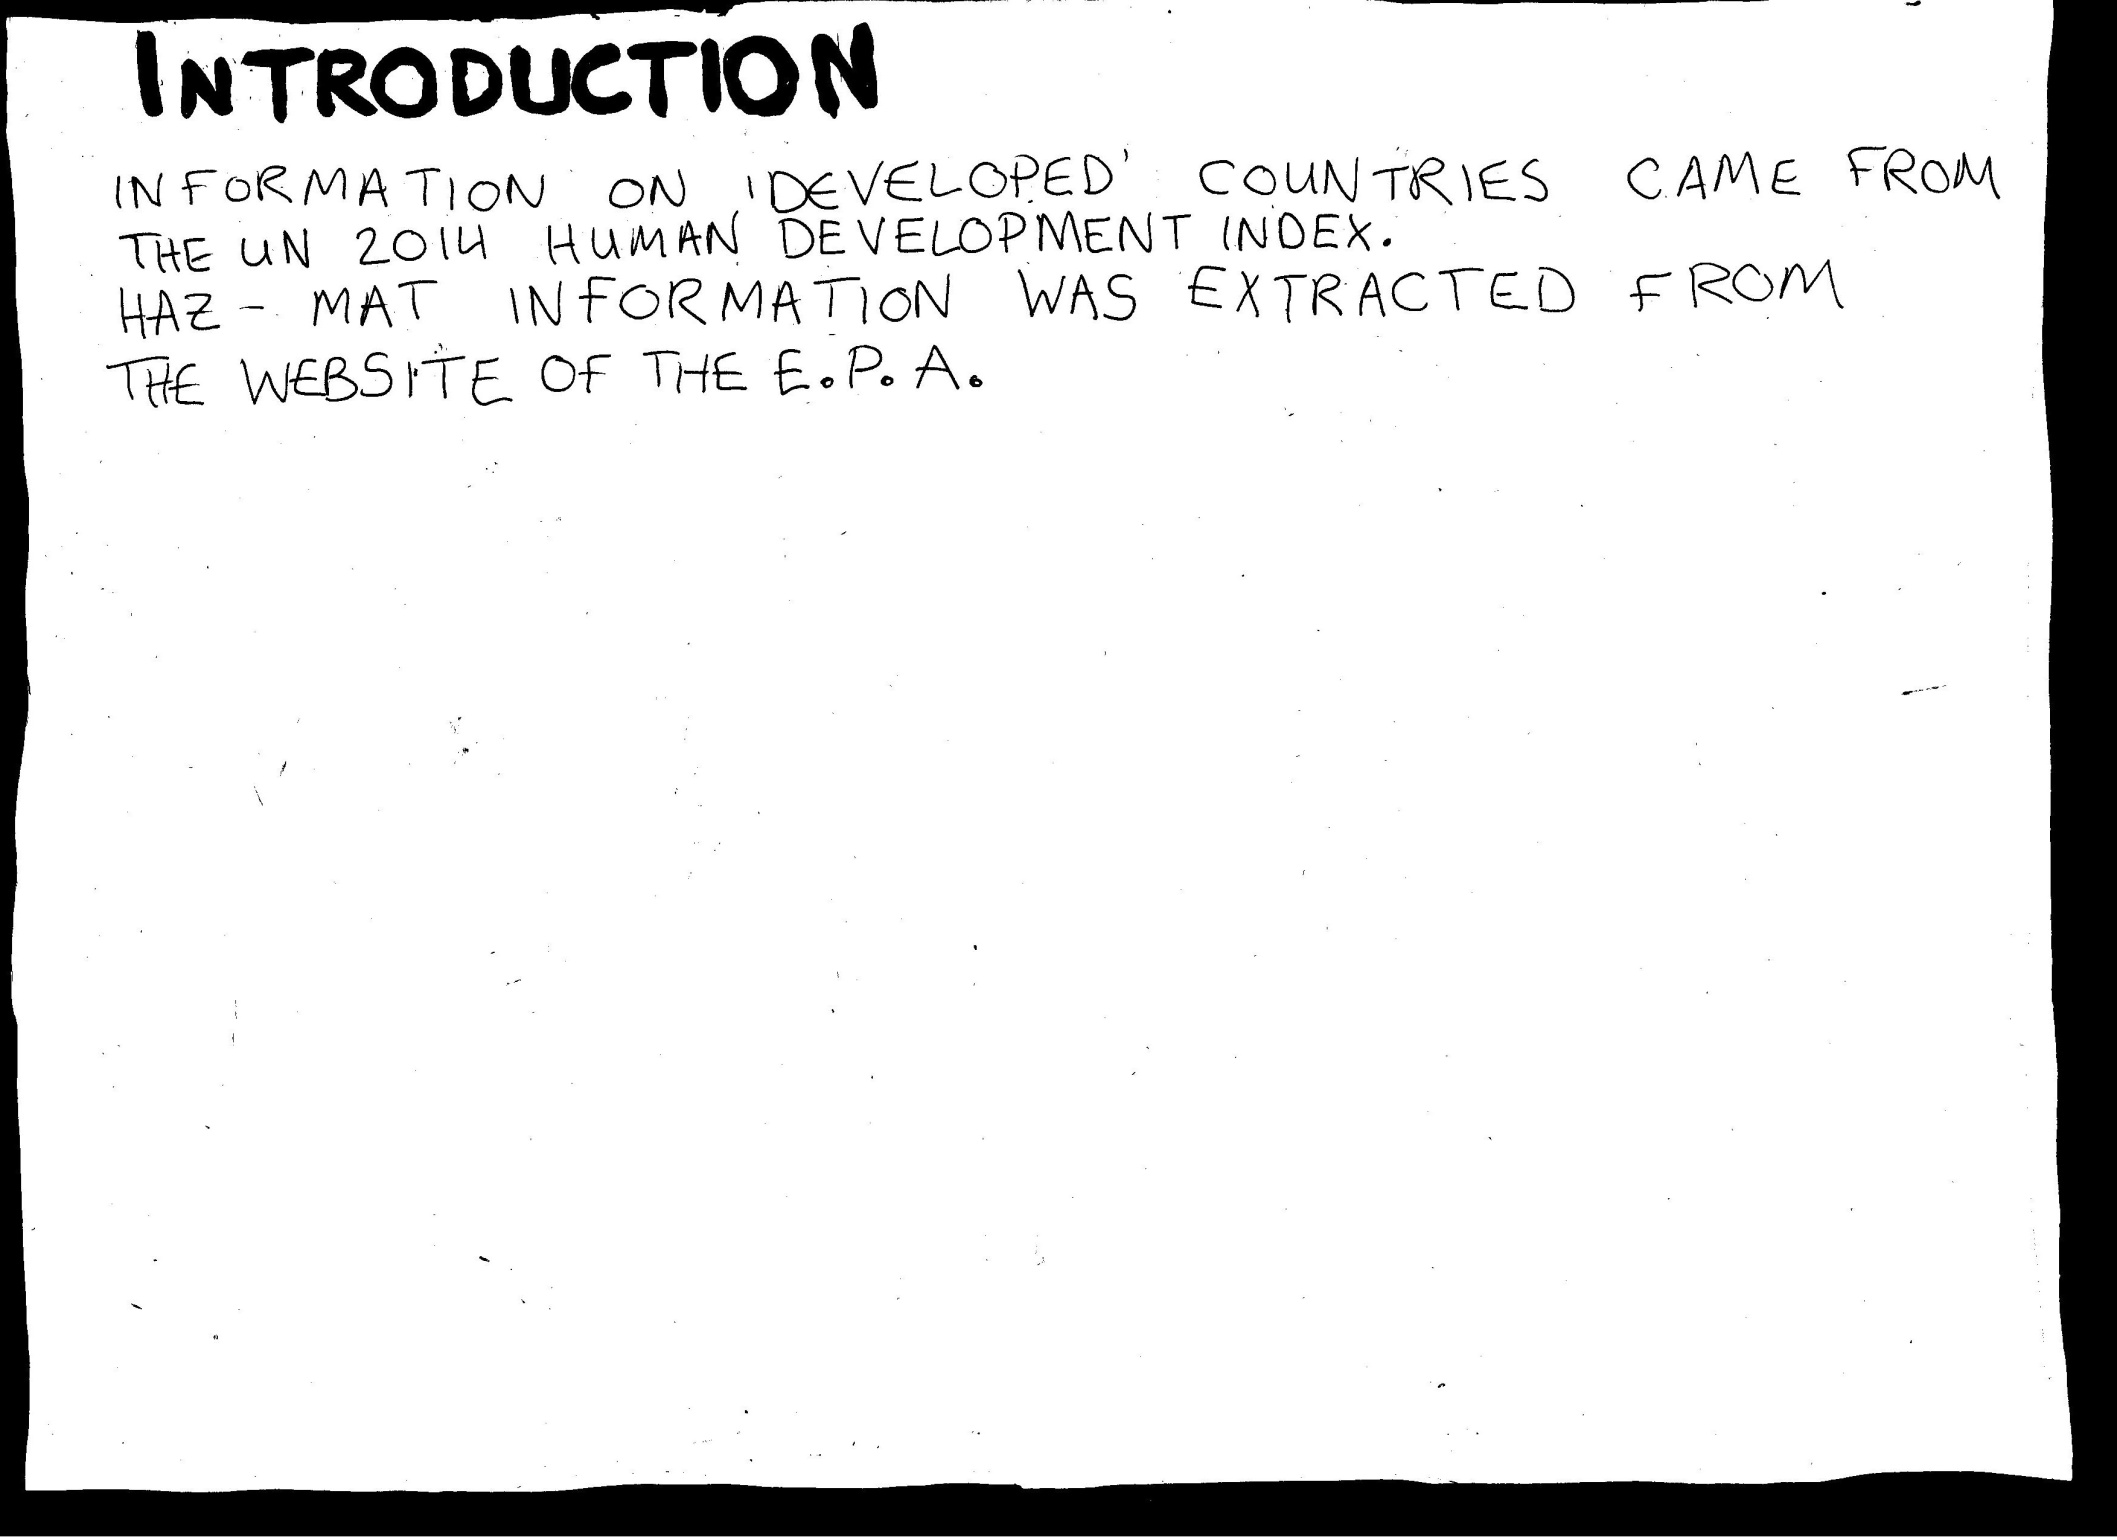 INTRODUCTION
INFORMATION ON 'DEVELOPED' COUNTRIES CAME FROM
THE UN 2014 HUMAN DEVELOPMENT INDEX.
HAZ-MAT INFORMATION WAS EXTRACTED FROM
THE WEBSITE OF THE E.P.A.